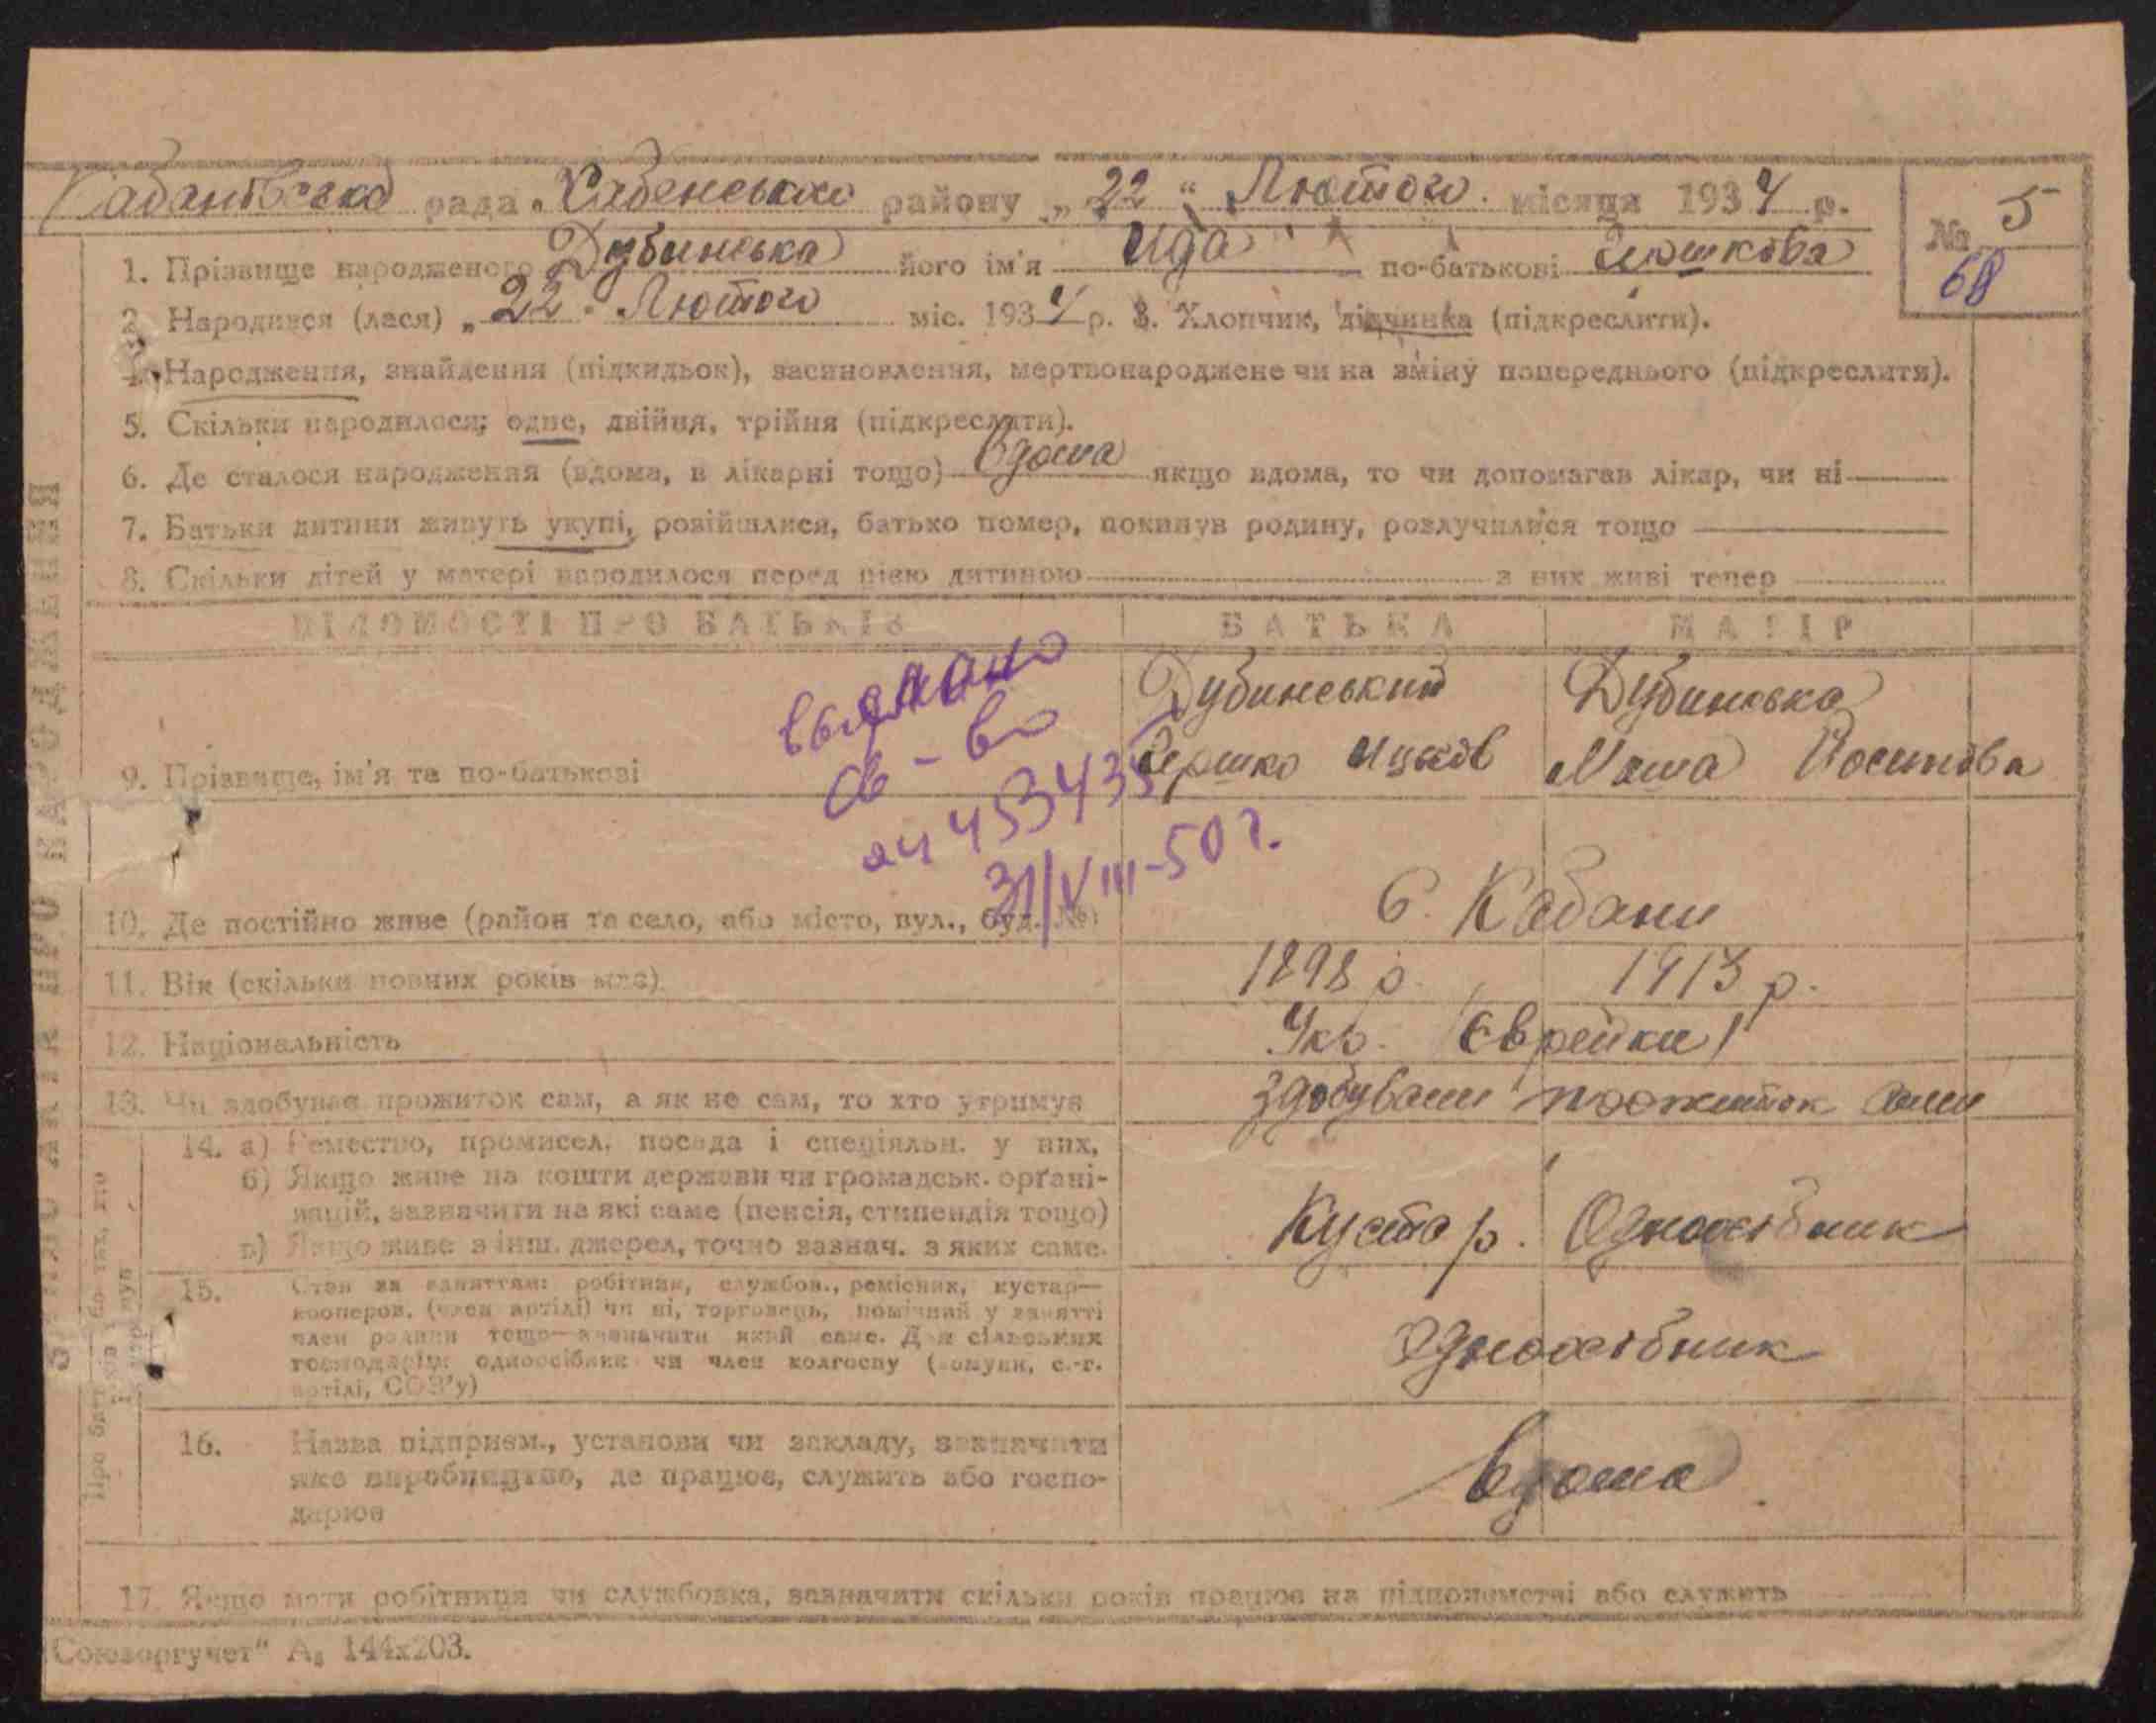 Кабанівська рада Хабенського району „22“ Лютого місяця 1934 р.
№ 5
68
1. Прізвище народженого Дубинська його ім'я Ида по-батькові Гершкова
2. Народився (лася) „22“ Лютого міс. 1934 р. 3. Хлопчик, дівчинка (підкреслити).
4. Народження, знайдення (підкидьок), засиновлення, мертвонароджене чи на зміну попереднього (підкреслити).
5. Скільки народилося; одне, двійня, трійня (підкреслити).
6. Де сталося народження (вдома, в лікарні тощо) Вдома якщо вдома, то чи допомагав лікар, чи ні
7. Батьки дитини живуть укупі, розійшлися, батько помер, покинув родину, розлучилися тощо
8. Скільки дітей у матері народилося перед цією дитиною з них живі тепер
ВІДОМОСТІ ПРО БАТЬКІВ БАТЬКА МАТІР
выдано
св-во
453435
31/VIII-50 г.
9. Прізвище, ім'я та по-батькові
Дубинський Гершко Ицков
Дубинська Маша
10. Де постійно живе (район та село, або місто, вул., буд. №) С. Кабани
11. Вік (скільки повних років має) 1898 р. 1913 р.
12. Національність Укр. Єврейки
13. Чи здобуває прожиток сам, а як не сам, то хто утримує здобували прожиток сами
14. а) Ремество, промисел, посада і спеціяльн. у них,
б) Якщо живе на кошти держави чи громадськ. органі-
зацій, зазначити на які саме (пенсія, стипендія тощо)
в) Якщо живе з інш. джерел, точно зазнач. з яких саме.
Кустар. Одноосібник
15. Стан за заняттям: робітник, службов., ремісник, кустар—
кооперов. (член артілі) чи ні, торговець, помічний у занятті
член родини тощо—зазначити який саме. Для сільських
господарів: одноосібник чи член колгоспу (комуни, с.-г.
артілі, СОЗ'у)
Одноосібник
16. Назва підприєм., установи чи закладу, зазначити
яке виробництво, де працює, служить або госпо-
дарює
Вдома
17. Якщо мати робітниця чи службовка, зазначити скільки років працює на підприємстві або служить
„Союзоргучет“ А₅ 144х203.
ПРО НАРОДЖЕННЯ